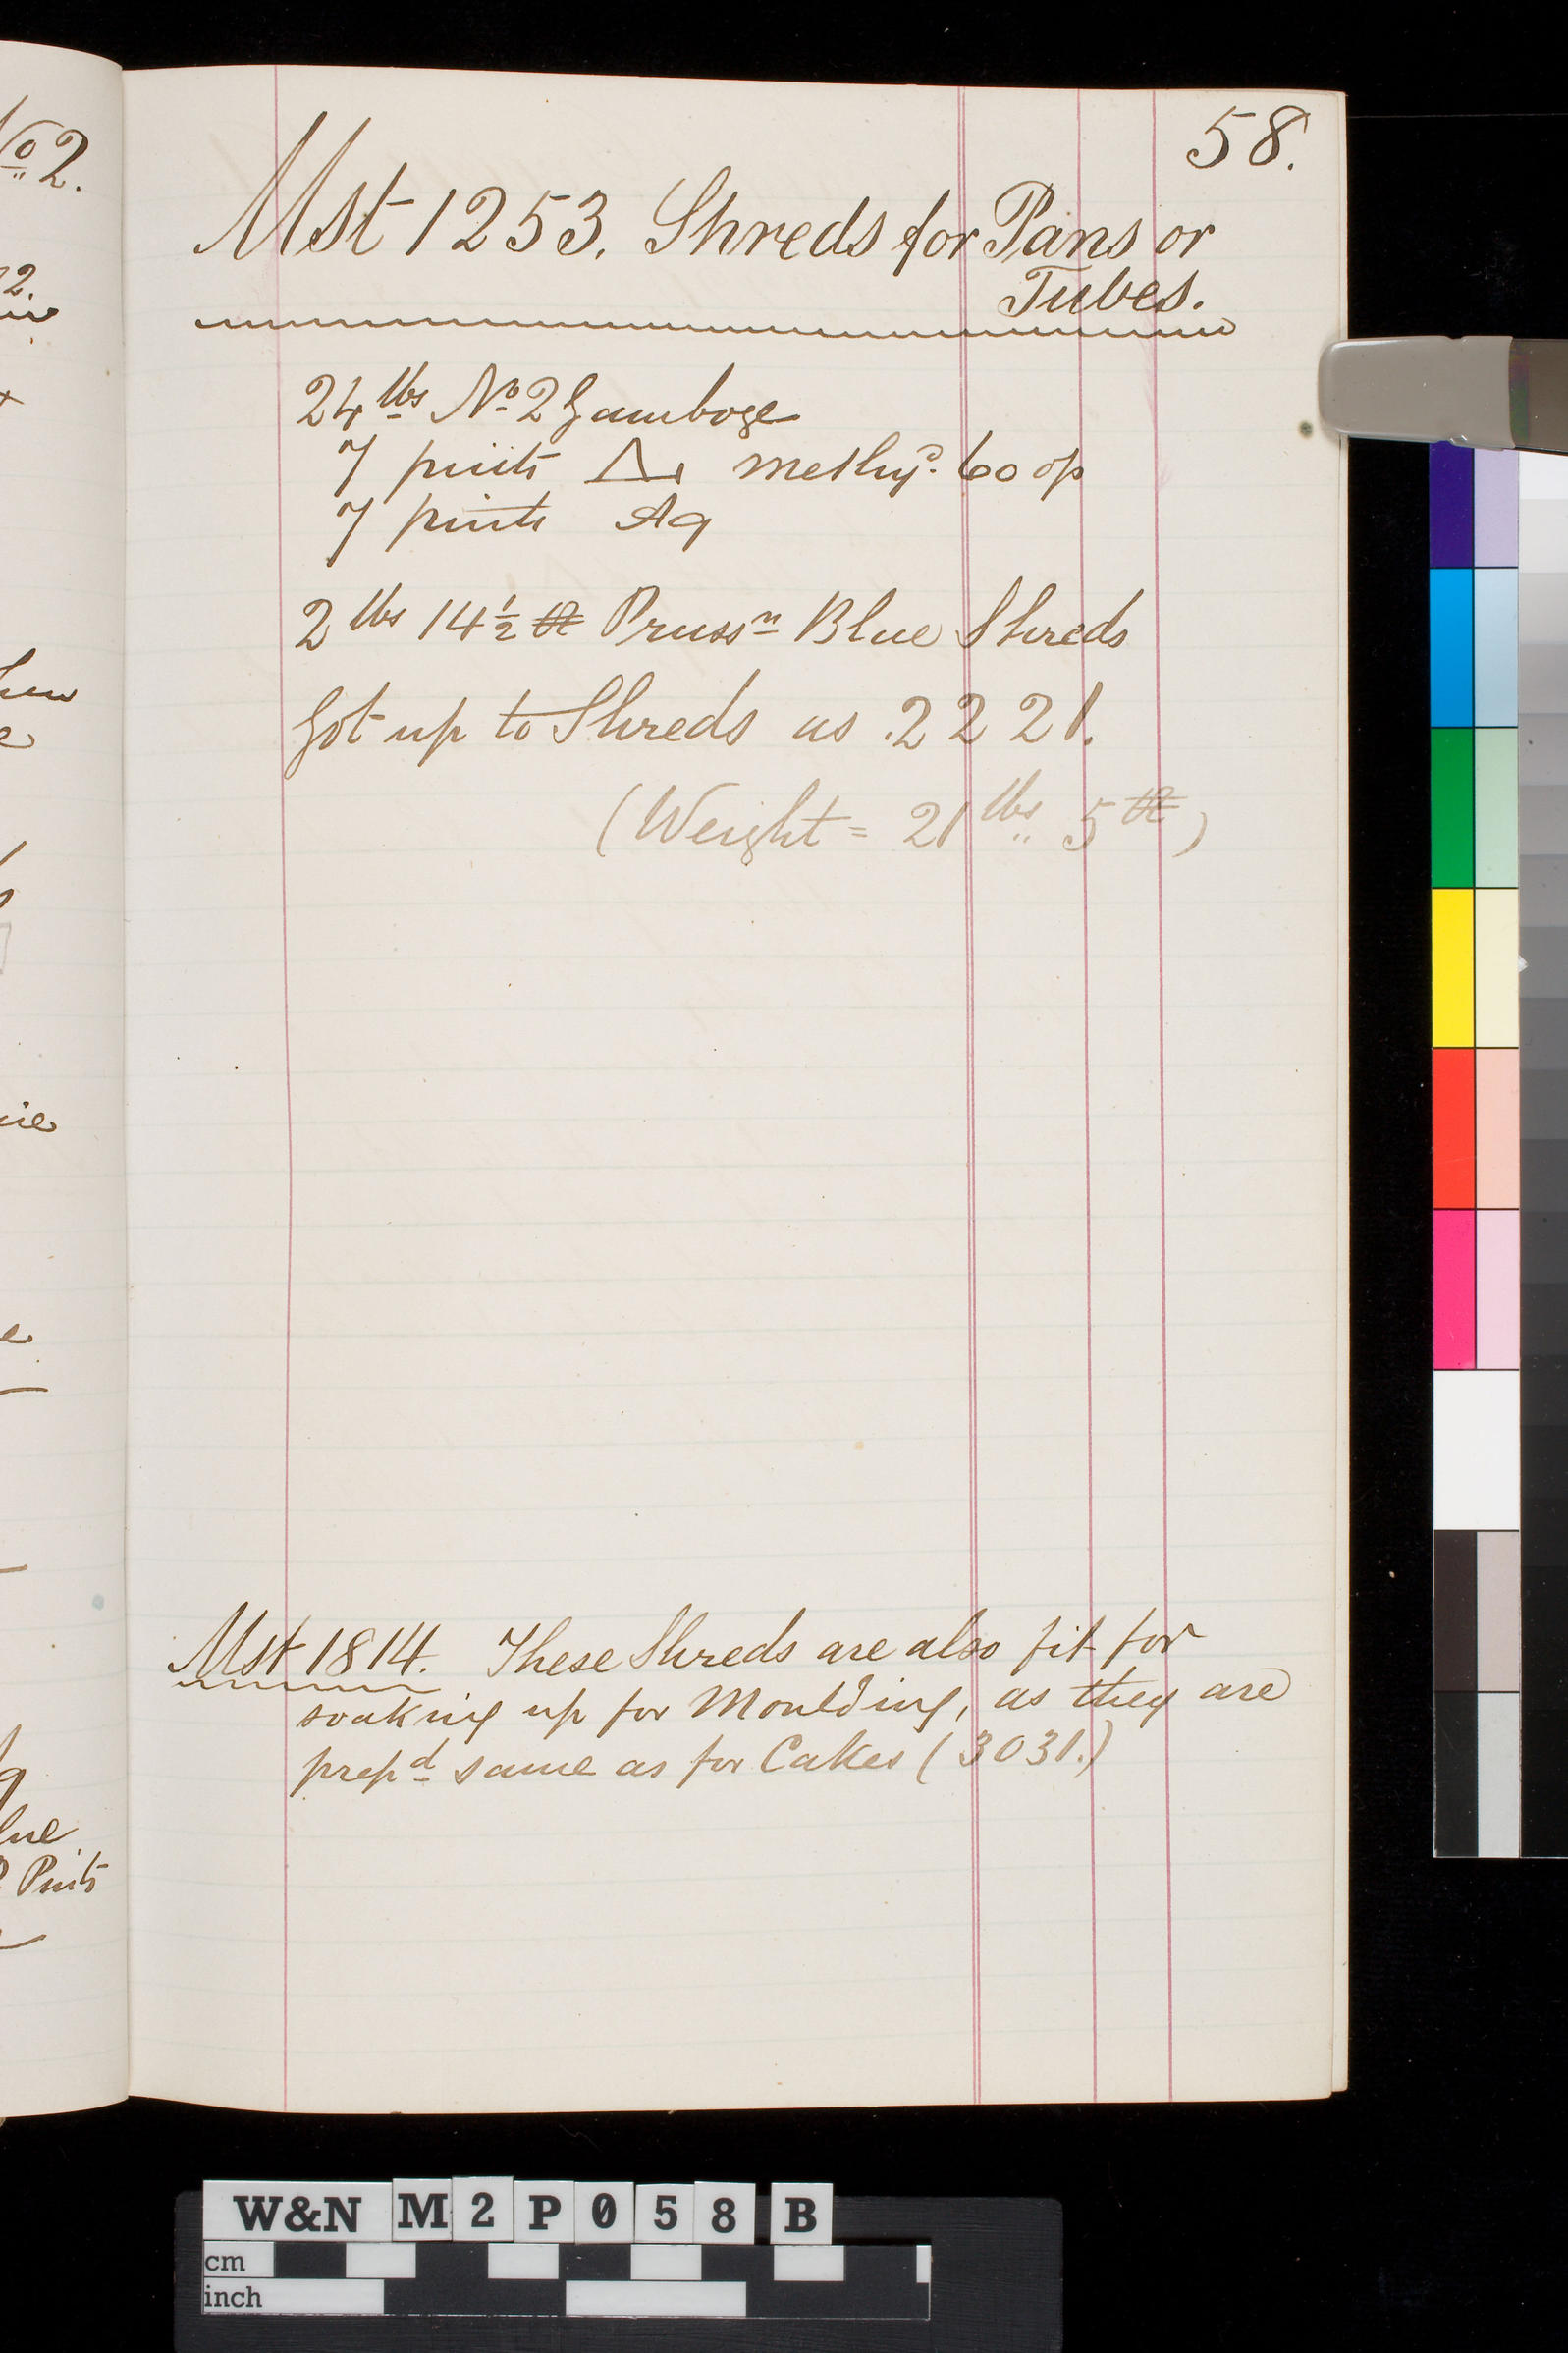 No 2.
2.
e
ue
e
lue
Pints
58.
Mst 1253. Shreds for Pans or
Tubes.
24 lbs No 2 Gamboge
7 pints △ methyd. 60 op
7 pints Aq
2 lbs 14½ oz Prussn Blue Shreds
Got up to Shreds as .2221.
(Weight = 21 lbs 5 oz)
Mst 1814. These Shreds are also fit for
soaking up for Moulding, as they are
prepd same as for Cakes (3031.)
W&N M2P058B
cm
inch